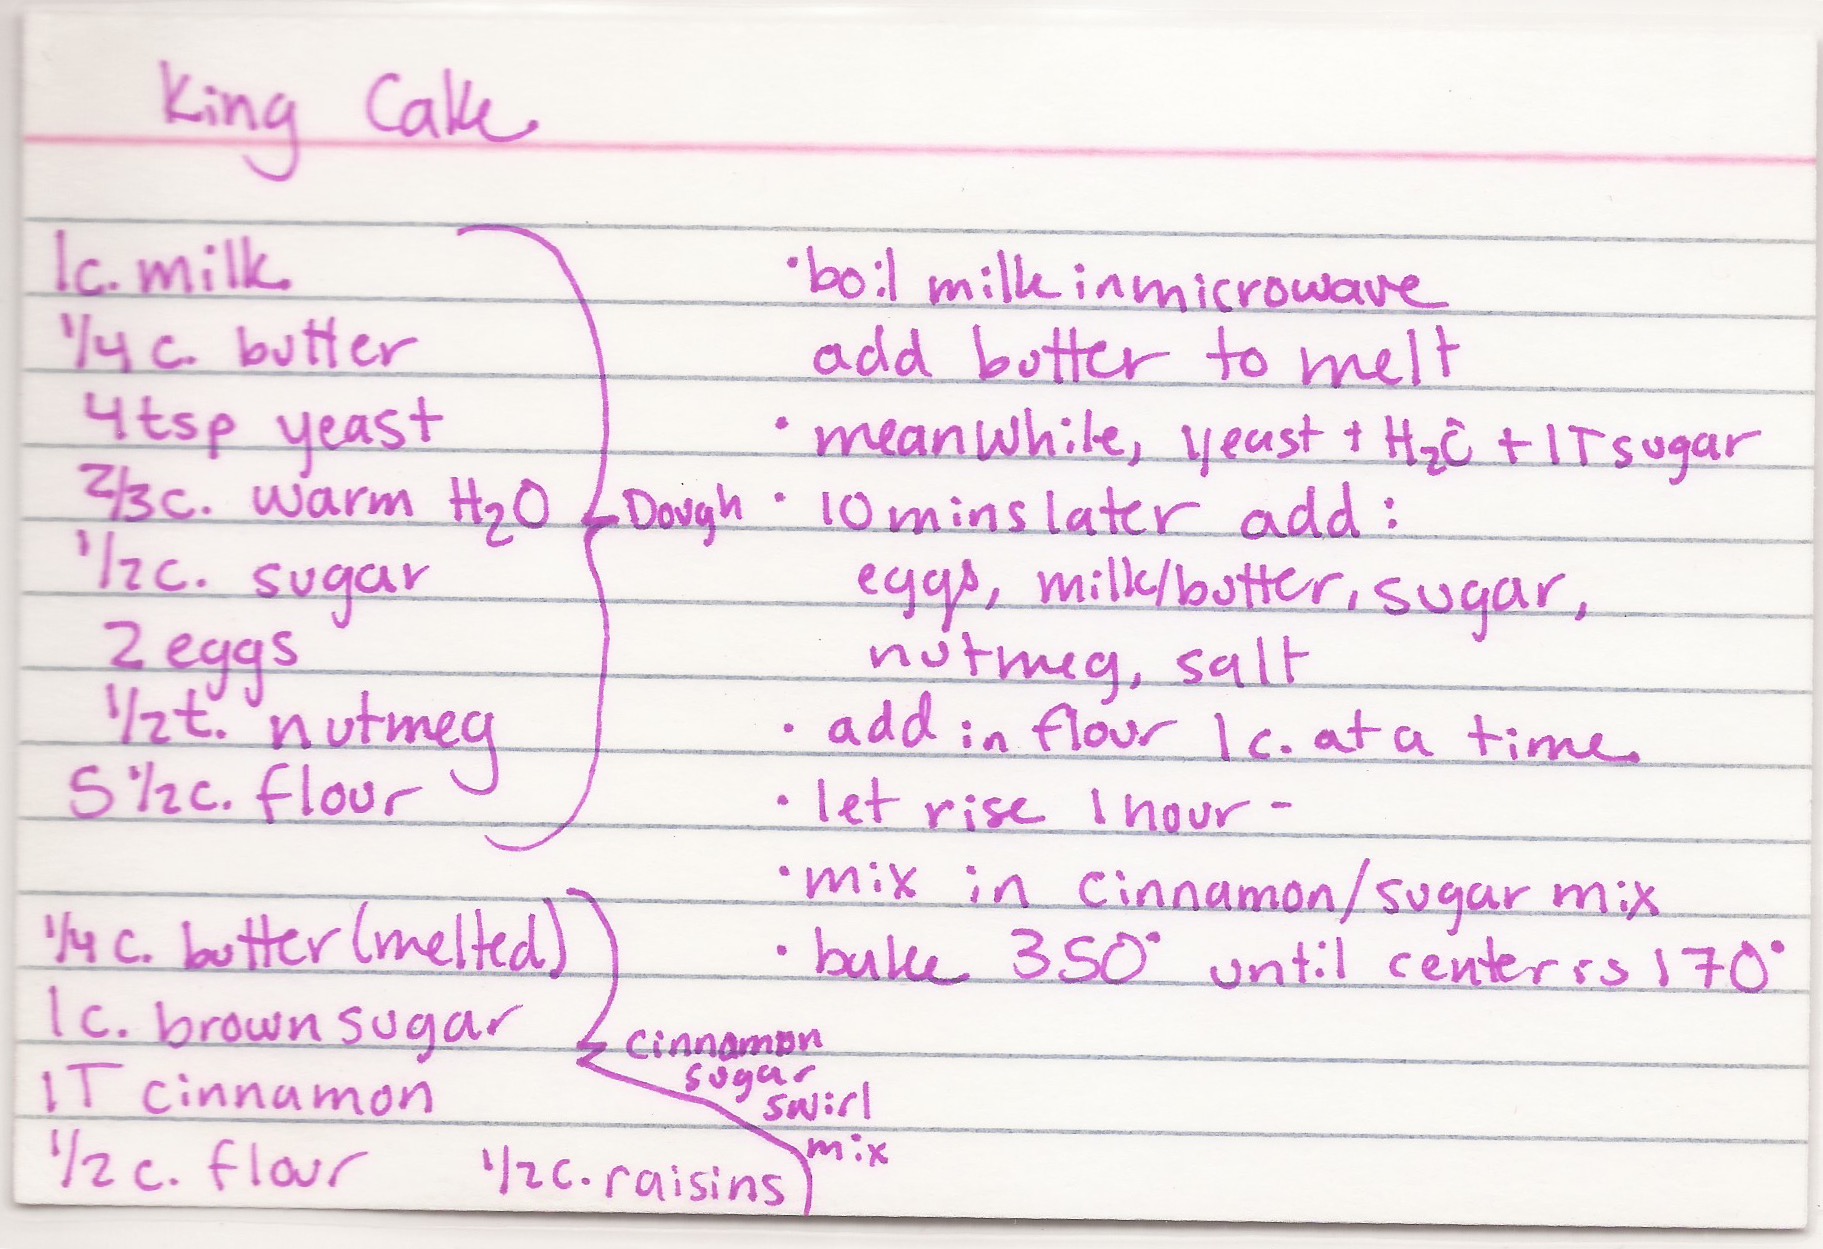 King Cake
1c. milk
1/4 c. butter
4tsp yeast
2/3c. warm H₂O
1/2c. sugar
2 eggs
1/2t. nutmeg
5 1/2c. flour
Dough
1/4 c. butter (melted)
1c. brown sugar
1T cinnamon
1/2c. flour 1/2c. raisins
cinnamon
sugar
swirl
mix
• boil milk in microwave
add butter to melt
• meanwhile, yeast + H₂O + 1T sugar
• 10 mins later add:
eggs, milk/butter, sugar,
nutmeg, salt
• add in flour 1c. at a time.
• let rise 1 hour -
• mix in cinnamon/sugar mix
• bake 350° until center is 170°